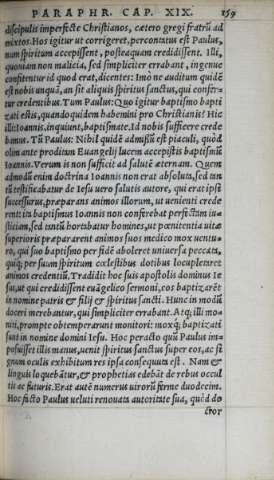 PARAPHR. CAP. XIX. 159
discipulis imperfecte Christianos, cætero gregi fratrū ad
mixtos. Hos igitur ut corrigeret, percontatus est Paulus,
num spiritum accepissent, posteaquam credidissent. Illi,
quoniam non malicia, sed simpliciter errabant, ingenue
confitentur id quod erat, dicentes: Imò ne auditum quidē
est nobis unquā, an sit aliquis spiritus sanctus, qui confer-
tur credentibus. Tum Paulus: Quo igitur baptismo bapti
zati estis, quando quidem habemini pro Christianis? Hic
illi: Ioannis, inquiunt, baptismate. Id nobis sufficere crede
bamus. Tū Paulus: Nihil quidē admissū est piaculi, quòd
olim ante proditum Euangelij lucem accepistis baptismū
Ioannis. Verum is non sufficit ad salutē æternam. Quem
admodū enim doctrina Ioannis non erat absoluta, sed tan
tū testificabatur de Iesu uero salutis autore, qui erat ipsi
successurus, præparans animos illorum, ut uenienti crede
rent: ita baptismus Ioannis non conferebat perfectam iu-
sticiam, sed tantū hortabatur homines, ut pœnitentia uitæ
superioris præpararent animos suos medico mox uentu-
ro, qui suo baptismo per fidē aboleret uniuersa peccata,
quiq; per suum spiritum cœlestibus dotibus locupletaret
animos credentiū. Tradidit hoc suis apostolis dominus Ie
sus, ut qui credidissent euāgelico sermoni, eos baptizarēt
in nomine patris & filij & spiritus sancti. Hunc in modū
doceri merebantur, qui simpliciter errabant. Atq; illi mo-
niti, prompte obtemperarunt monitori: moxq; baptizati
sunt in nomine domini Iesu. Hoc peracto quū Paulus im-
posuisset illis manus, uenit spiritus sanctus super eos, ac si
gnum oculis exhibitum res ipsa consequuta est. Nam &
linguis loquebātur, & prophetias edebāt de rebus occul
tis ac futuris. Erat autē numerus uirorū ferme duodecim.
Hoc facto Paulus ueluti renouata autoritate sua, quòd do
ctor